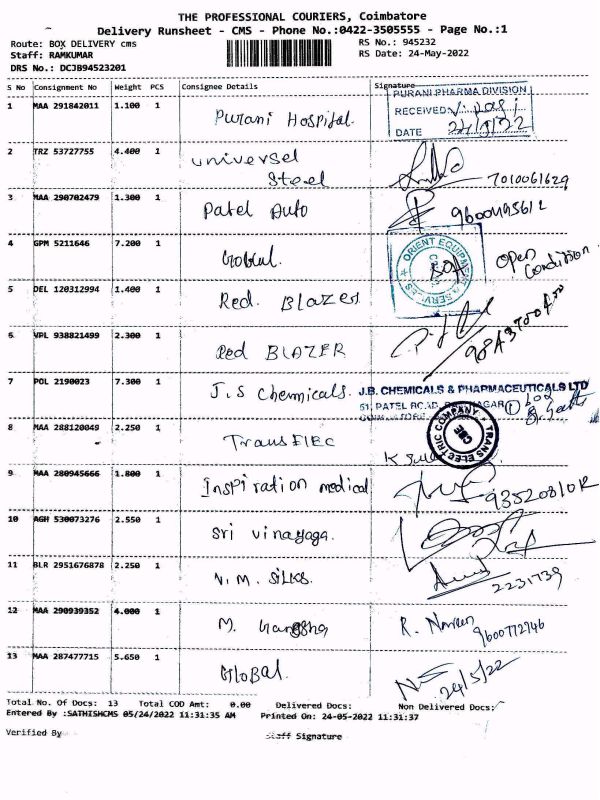 THE PROFESSIONAL COURIERS, Coimbatore
Delivery Runsheet - CMS - Phone No.:0422-3505555 - Page No.:1
Route: BOX DELIVERY cms
RS No.: 945232
Staff: RAMKUMAR
RS Date: 24-May-2022
DRS No.: DCJB94523201
S No Consignment No Weight PCS Consignee Details Signature
PURANI PHARMA DIVISION
1 MAA 291842011 1.100 1 Purani Hospital. RECEIVED
DATE 24/5/22
2 TRZ 53727755 4.400 1 universel
Steel 7010061629
3 MAA 290702479 1.300 1 Patel Auto 9600495612
4 GPM 5211646 7.200 1 ORIENT EQUIPMENT
& SERVICES
Box open
Condition
5 DEL 120312994 1.400 1 Red. Blazer
6 VPL 938821499 2.300 1 Red BLAZER
7 POL 2190023 7.300 1 J.S chemicals. J.B. CHEMICALS & PHARMACEUTICALS LTD
51, PATEL ROAD, NAGAR
8 MAA 288120049 2.250 1 Trans ElEC
TRANS ELECTRIC COMPANY
CBE
9 MAA 280945666 1.800 1 Inspiration medical
10 AGH 530073276 2.550 1 Sri vinayaga.
11 BLR 2951676878 2.250 1 V. M. SILKS. 2231739
12 MAA 290939352 4.000 1 M. R. Naveen
9600772746
13 MAA 287477715 5.650 1 Global. 24/5/22
Total No. Of Docs: 13 Total COD Amt: 0.00 Delivered Docs: Non Delivered Docs:
Entered By :SATHISHCMS 05/24/2022 11:31:35 AM Printed On: 24-05-2022 11:31:37
Verified By
Staff Signature